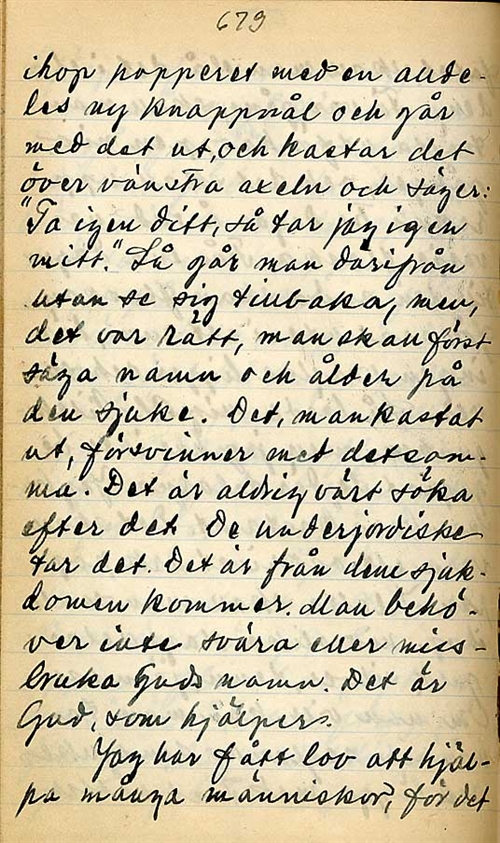 679
ihop papperet med en alde-
les ny knappnål och går
med det ut, och kastar det
över vänstra axeln och säger:
"Ta igen ditt, så tar jag igen
mitt." Så går man därifrån
utan se sig tillbaka, men,
det var rätt, man skall först
säga namn och ålder på
den sjuke. Det, man kastat
ut, försvinner med detsam-
ma. Det är aldrig värt söka
efter det. De underjordiske
tar det. Det är från dem sjuk-
domen kommer. Man behö-
ver inte svära eller miss-
bruka Guds namn. Det är
Gud, som hjälper.
Jag har fått lov att hjäl-
pa många människor, för det